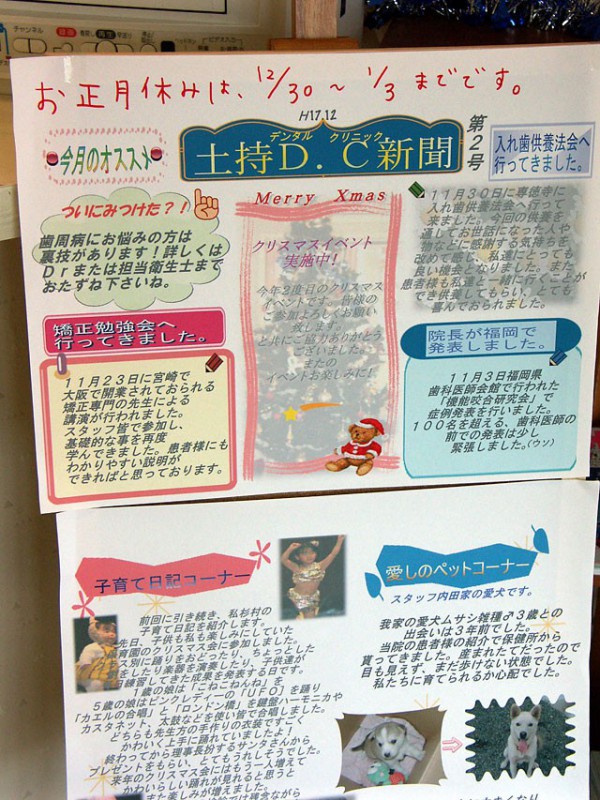 チャンネル
録画
再生
お正月休みは、12/30～1/3までです。
H17.12
今月のオススメ
デンタル クリニック
土持D.C新聞
第2号
入れ歯供養法会へ
行ってきました。
ついにみつけた?!
歯周病にお悩みの方は
裏技があります!詳しくは
Drまたは担当衛生士まで
おたずね下さいね。
矯正勉強会へ
行ってきました。
11月23日に宮崎で
大阪で開業されておられる
矯正専門の先生による
講演が行われました。
スタッフ皆で参加し、
基礎的な事を再度
学んできました。患者様にも
わかりやすい説明が
できればと思っております。
Merry Xmas
クリスマスイベント
実施中!
今年2度目のクリスマス
イベントです。皆様の
ご参加よろしくお願い
致します。
ど共にご協力ありがとう
ございました。
またの
イベントお楽しみに!
11月30日に専徳寺に
入れ歯供養法会へ行って
来ました。今回の供養を
通してお世話になった人や
物などに感謝する気持ちを
改めて感じ、私達にとっても
良い機会となりました。また
患者様も私達と一緒に行くことが
でき供養してもらい、とても
喜んでおられました。
院長が福岡で
発表しました。
11月3日福岡県
歯科医師会館で行われた
「機能咬合研究会」で
症例発表を行いました。
100名を超える、歯科医師の
前での発表は少し
緊張しました。(ウソ)
子育て日記コーナー
前回に引き続き、私杉村の
子育て日記を紹介します。
先日、子供も私も楽しみにしていた
育園のクリスマス会に参加しました。
ス別に踊りをおどったり、ちょっとした
をしたり楽器を演奏したり、子供達が
日練習してきた成果を発表する日です。
1歳の娘は「こねこねんね」を
5歳の娘はピンクレディーの「UFO」を踊り
「カエルの合唱」と「ロンドン橋」を鍵盤ハーモニカや
カスタネット、太鼓などを使い皆で合唱しました。
どちらも先生方の手作りの衣装ですごく
かわいく上手に踊れていましたよ!
終わってから理事長扮するサンタさんから
プレゼントをもらい、とてもうれしそうでした。
来年のクリスマス会にはもう一人増えて
かわいらしい踊りが見れると思うと
また楽しみが増えました。
愛しのペットコーナー
スタッフ内田家の愛犬です。
我家の愛犬ムサシ雑種♂3歳との
出会いは3年前でした。
当院の患者様の紹介で保健所から
貰ってきました。産まれたてだったので
目も見えず、まだ歩けない状態でした。
私たちに育てられるか心配でした。